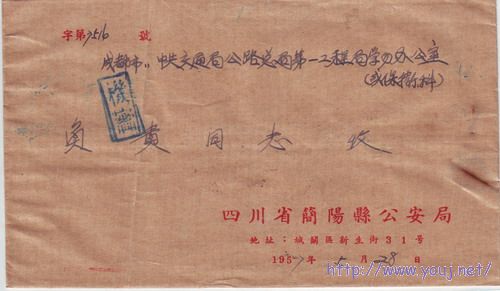 字第7516號
成都市:中共交通局公路总局第一工程局学习办公室
(或保衛科)
機密
負責同志收
四川省簡陽縣公安局
地址：城關區新生街31号
1957年5月28日
http://www.youj.net/